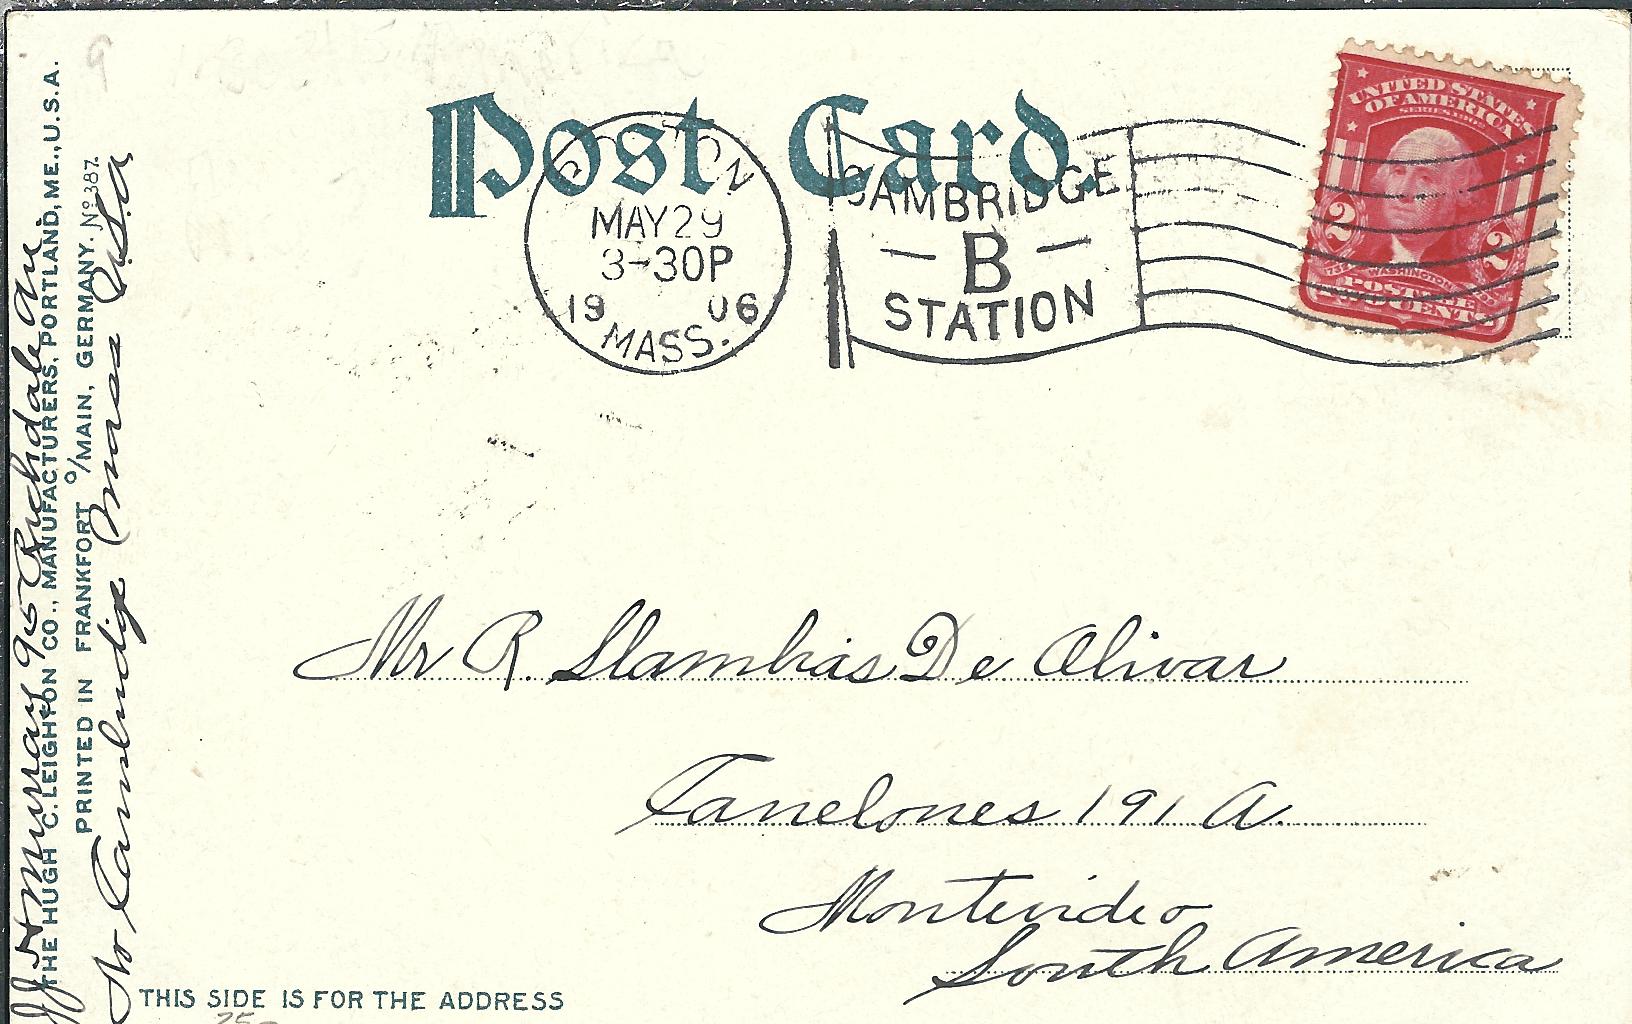 Post Card.
BOSTON
MAY 29
3-30P
1906
MASS.
CAMBRIDGE
B
STATION
UNITED STATES
OF AMERICA
SERIES 1902
2 2
WASHINGTON
POSTAGE
TWO CENTS
Mr R. Llambias De Olivar
Canelones 191 A.
Montevideo
South America
THIS SIDE IS FOR THE ADDRESS
THE HUGH C. LEIGHTON CO., MANUFACTURERS, PORTLAND, ME., U.S.A.
PRINTED IN FRANKFORT O/MAIN, GERMANY. No 387.
J H Murray 95 Richdale av
No Cambridge Mass U.S.a
9
25